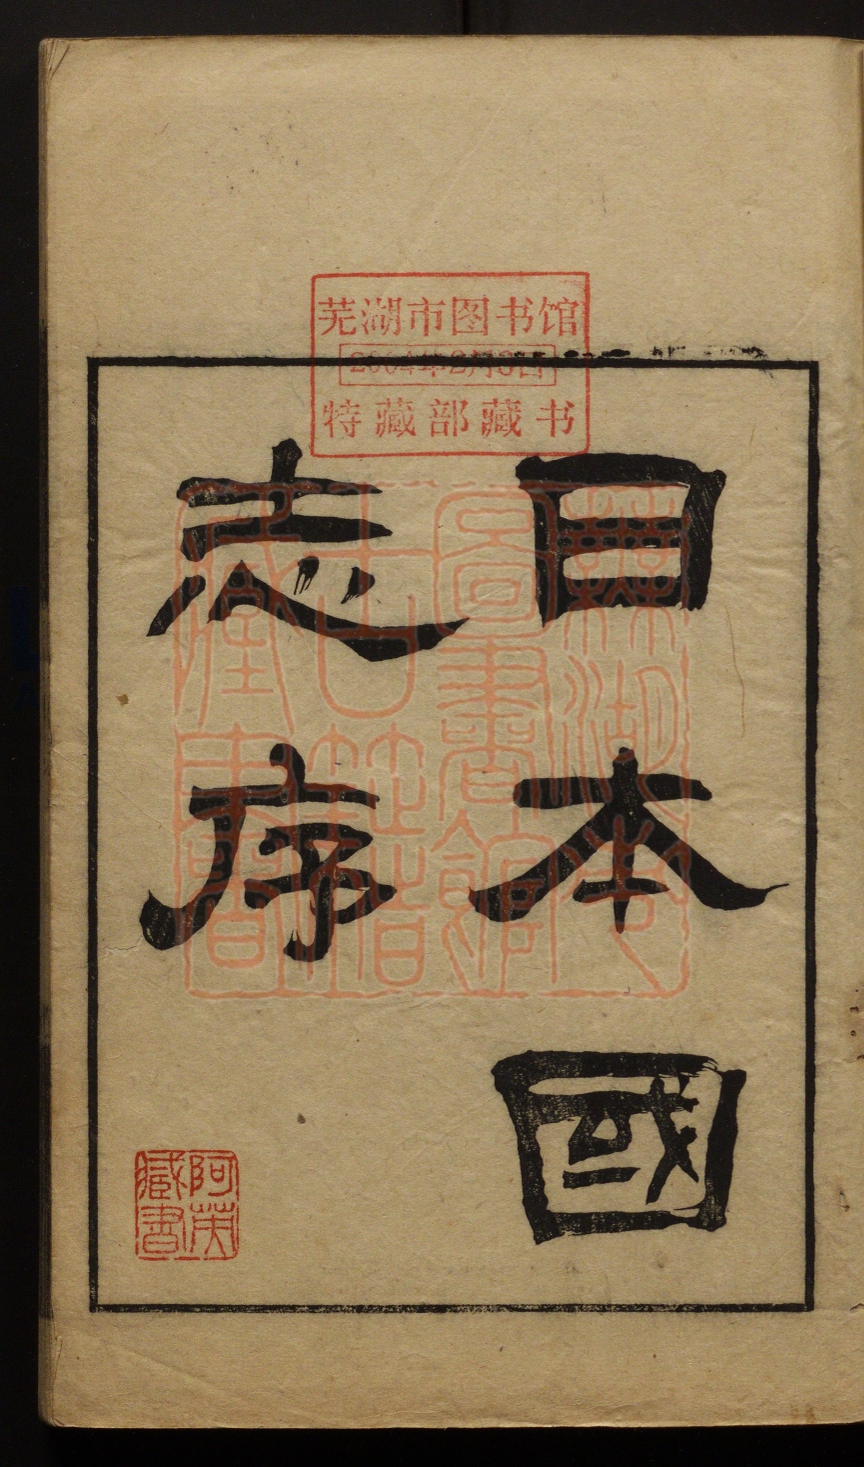 芜湖市图书馆
2004年2月3日
特藏部藏书
日本國
志序
蕪湖市
圖書館
古籍
藏書
阿英
臧書